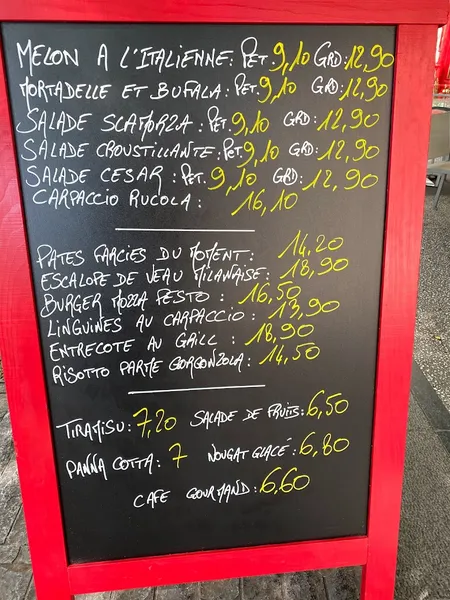 MELON A L'ITALIENNE: PET. 9,10 GRD: 12,90
MORTADELLE ET BUFALA: PET. 9,10 GRD: 12,90
SALADE SCAMORZA: PET. 9,10 GRD: 12,90
SALADE CROUSTILLANTE: PET. 9,10 GRD: 12,90
SALADE CESAR: PET. 9,10 GRD: 12,90
CARPACCIO RUCOLA: 16,10
PATES FARCIES DU MOMENT: 14,20
ESCALOPE DE VEAU MILANAISE: 18,90
BURGER MOZZA PESTO: 16,50
LINGUINES AU CARPACCIO: 13,90
ENTRECOTE AU GRILL: 18,90
RISOTTO PARME GORGONZOLA: 14,50
TIRAMISU: 7,20 SALADE DE FRUITS: 6,50
PANNA COTTA: 7 NOUGAT GLACÉ: 6,80
CAFE GOURMAND: 6,60